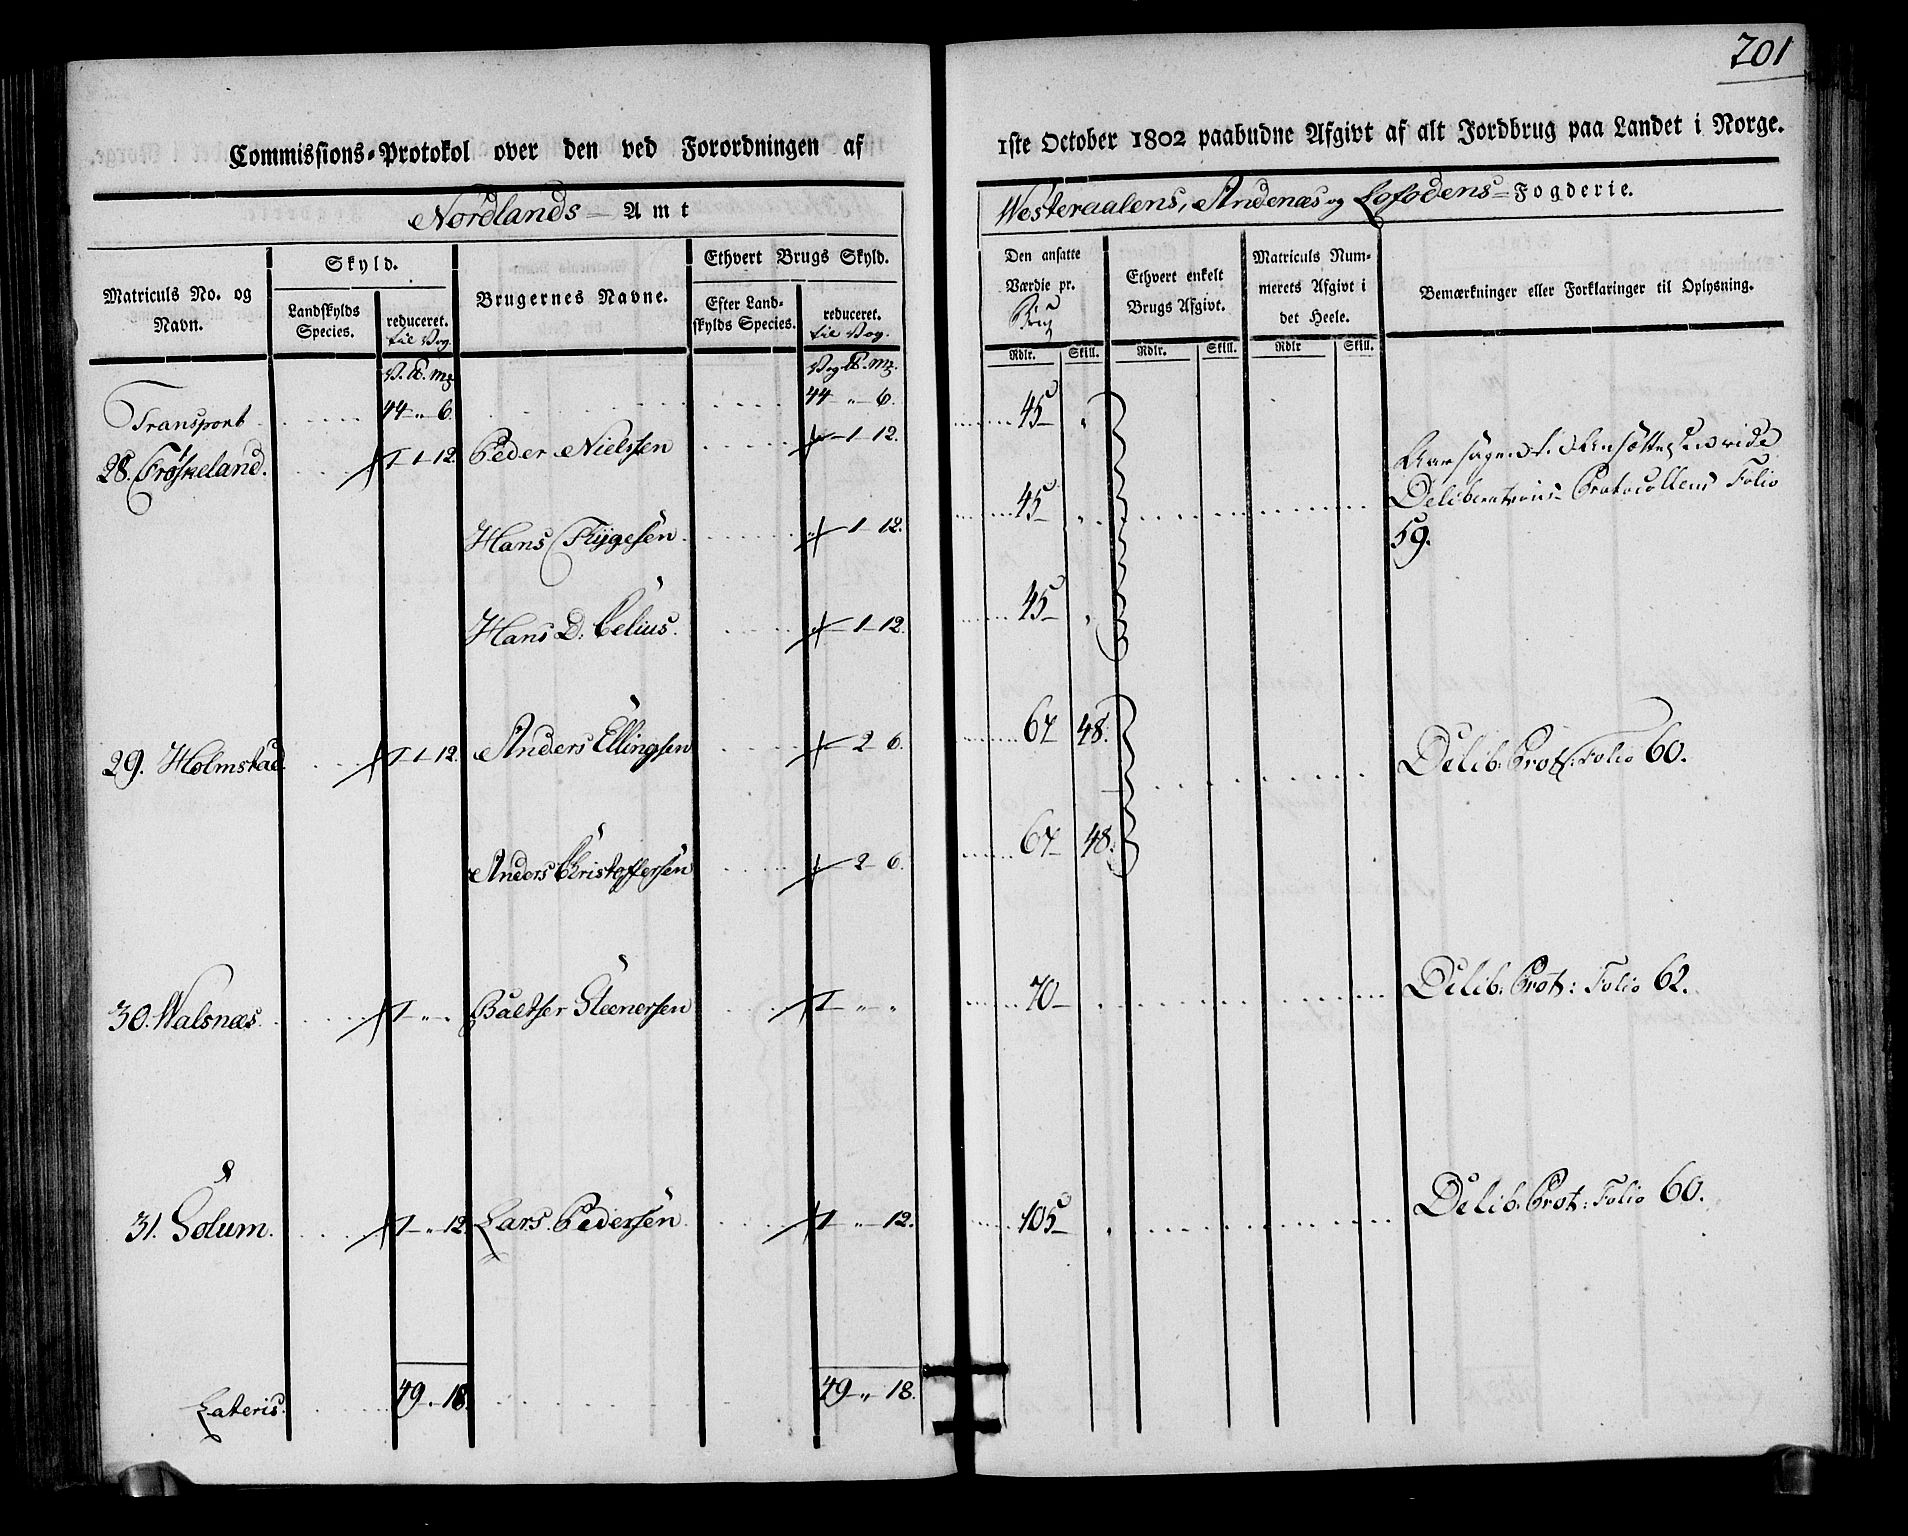 201
Commissions-Protokol over den ved Forordningen af
1ste October 1802 paabudne Afgivt af alt Jordbrug paa Landet i Norge.
Nordlands Amt
Westeraalens, Andenæs og Lofodens Fogderie.
Matriculs No. og Navn.
Skyld.
Landskylds Species.
reduceret.
til Vog
Brugernes Navne.
Ethvert Brugs Skyld.
Efter Land-
skylds Species.
reduceret.
til Vog.
Den ansatte
Værdie pr.
Brug
Rdlr. Skill.
Ethvert enkelt
Brugs Afgivt.
Rdlr. Skill.
Matriculs Num-
merets Afgivt i
det Heele.
Rdlr Skill.
Bemærkninger eller Forklaringer til Oplysning.
V. ℔. mz.
Vog ℔. mz.
Transport 44 " 6. 44 " 6.
28. Frøskeland. 1 - 1 - 12. Peder Nielssen 1 - 12. 45 "
Hans Tygesen 1 - 12. 45 "
Deliberations Protocollens Folio
59.
Hans D. Celius. 1 - 12. 45 "
29. Holmstad 1 - 1 - 12. Anders Ellingsen 2 - 6. 67 48. Delib. Prot: Folio 60.
Anders Christoffersen 2 - 6. 67 48.
30. Walsnæs. 1 " " Baltser Steenersen 1 " " 70 " Delib. Prot: Folio 62.
31. Solum. 1 " 12. Lars Pedersen 1 " 12. 105 " Delib. Prot: Folio 60.
Lateris. 49 " 18. 49 " 18.